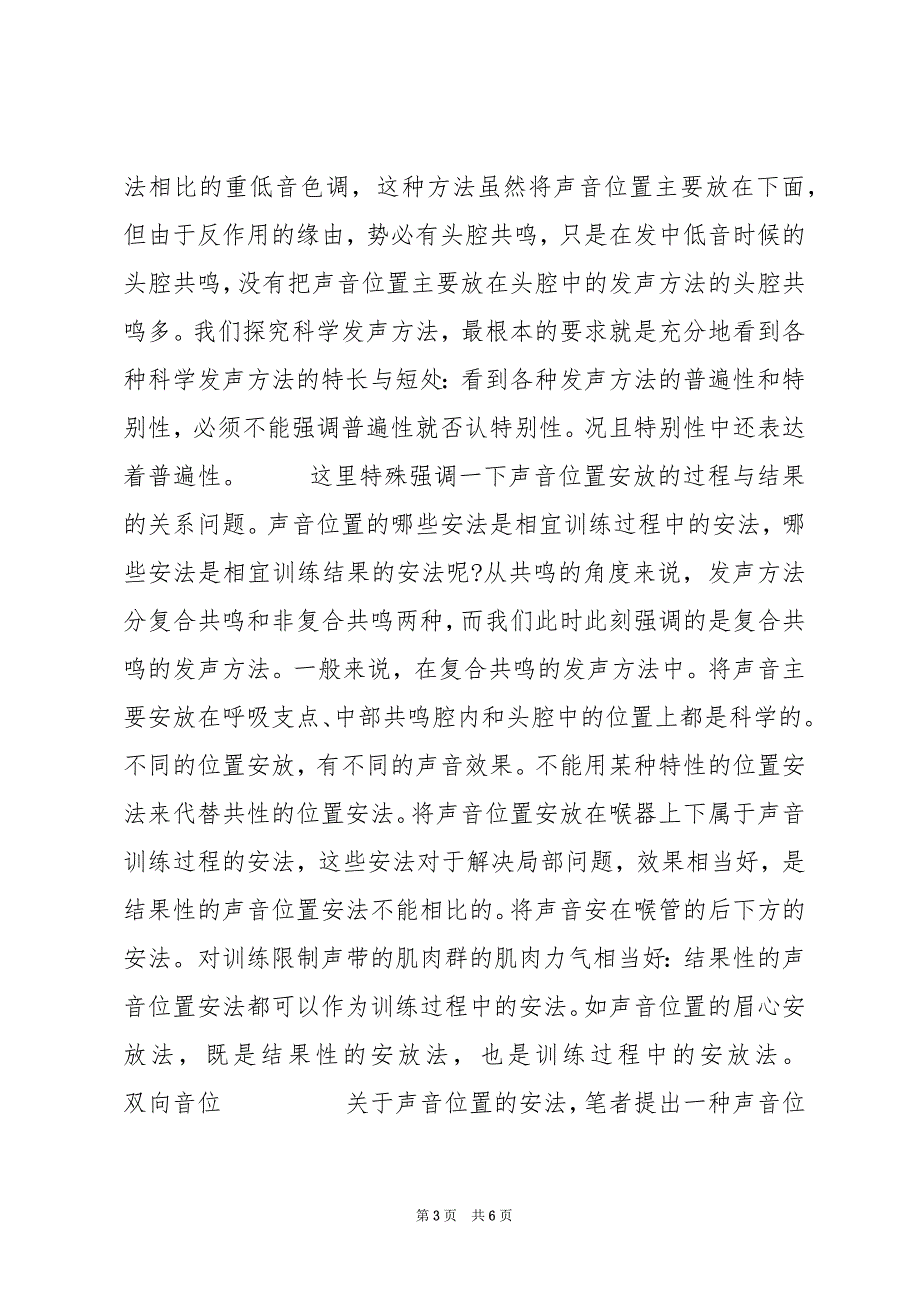 法相比的重低音色调，这种方法虽然将声音位置主要放在下面，
但由于反作用的缘由，势必有头腔共鸣，只是在发中低音时候的
头腔共鸣，没有把声音位置主要放在头腔中的发声方法的头腔共
鸣多。我们探究科学发声方法，最根本的要求就是充分地看到各
种科学发声方法的特长与短处：看到各种发声方法的普遍性和特
别性，必须不能强调普遍性就否认特别性。况且特别性中还表达
着普遍性。 这里特殊强调一下声音位置安放的过程与结果
的关系问题。声音位置的哪些安法是相宜训练过程中的安法，哪
些安法是相宜训练结果的安法呢?从共鸣的角度来说，发声方法
分复合共鸣和非复合共鸣两种，而我们此时此刻强调的是复合共
鸣的发声方法。一般来说，在复合共鸣的发声方法中。将声音主
要安放在呼吸支点、中部共鸣腔内和头腔中的位置上都是科学的。
不同的位置安放，有不同的声音效果。不能用某种特性的位置安
法来代替共性的位置安法。将声音位置安放在喉器上下属于声音
训练过程的安法，这些安法对于解决局部问题，效果相当好，是
结果性的声音位置安法不能相比的。将声音安在喉管的后下方的
安法。对训练限制声带的肌肉群的肌肉力气相当好：结果性的声
音位置安法都可以作为训练过程中的安法。如声音位置的眉心安
放法，既是结果性的安放法，也是训练过程中的安放法。
双向音位 关于声音位置的安法，笔者提出一种声音位
第 3 页 共 6 页